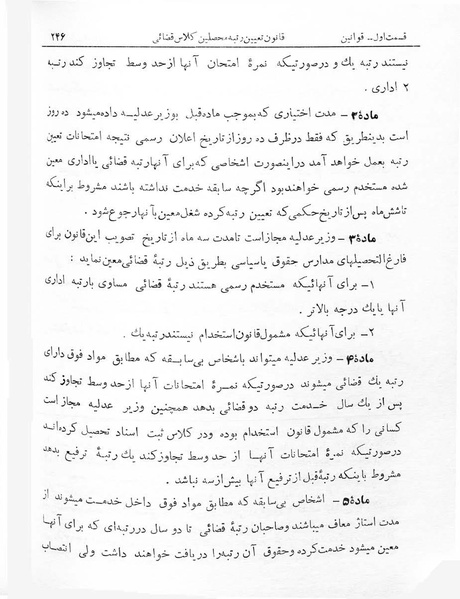 قسمت اول – قوانین قانون تعیین رتبه محصلین کلاس قضائی ۲۴۶
نیستند رتبه یك و درصورتیکه نمرهٔ امتحان آنها ازحد وسط تجاوز کند رتبه
۲ اداری .
مادهٔ۲ – مدت اختیاری که بموجب مادهقبل بوزیرعدلیه دادهمیشود دهروز
است بدینطریق که فقط درظرف ده روزازتاریخ اعلان رسمی نتیجه امتحانات تعین
رتبه بعمل خواهد آمد دراینصورت اشخاصی که برای آنهارتبه قضائی یااداری معین
شده مستخدم رسمی خواهندبود اگرچه سابقه خدمت نداشته باشند مشروط براینکه
تاشش‌ماه پس‌ازتاریخ‌حکمی‌که تعیین رتبه‌کرده شغل‌معین‌بآنهارجوع‌شود .
مادهٔ۳ – وزیرعدلیه مجازاست تامدت سه ماه ازتاریخ تصویب این‌قانون برای
فارغ‌التحصیلهای مدارس حقوق یاسیاسی بطریق ذیل رتبهٔ قضائی‌معین‌نماید :
۱– برای آنهائیکه مستخدم رسمی هستند رتبهٔ قضائی مساوی بارتبه اداری
آنها یایك درجه بالاتر .
۲– برای‌آنهائیکه مشمول‌قانون‌استخدام نیستندرتبه‌یك .
مادهٔ۴ – وزیر عدلیه میتواند باشخاص بی‌سابقه که مطابق مواد فوق‌دارای
رتبه یك قضائی میشوند درصورتیکه نمرهٔ امتحانات آنها ازحد وسط تجاوز کند
پس از یك سال خدمت رتبه دوقضائی بدهد همچنین وزیر عدلیه مجاز است
کسانی را که مشمول قانون استخدام بوده ودر کلاس ثبت اسناد تحصیل کرده‌اند
درصورتیکه نمرهٔ امتحانات آنها از حد وسط تجاوزکند یك رتبهٔ ترفیع بدهد
مشروط باینکه رتبهٔقبل‌ازترفیع آنها بیش‌ازسه نباشد .
مادهٔ۵ – اشخاص بی‌سابقه که مطابق مواد فوق داخل خدمت میشوند از
مدت استاژ معاف میباشند وصاحبان رتبهٔ قضائی تا دو سال دررتبه‌ای که برای آنها
معین میشود خدمت‌کرده وحقوق آن رتبه‌را دریافت خواهند داشت ولی انتصاب